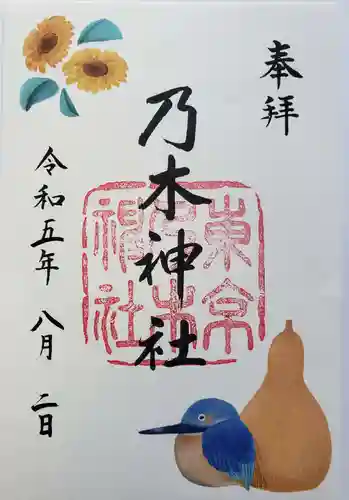 奉拝
乃木神社
東京
乃木
神社
令和五年 八月 二日